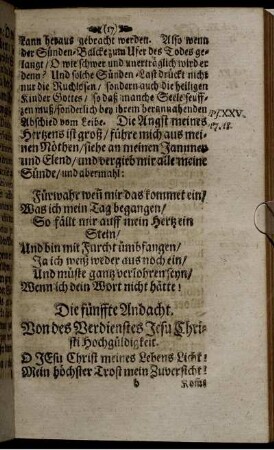 (17)
kann heraus gebracht werden. Also wenn
der Sünden-Bälcke zum Ufer des Todes ge-
langt/ O wie schwer und unerträglich wird er
denn? Und solche Sünden-Last drückt nicht
nur die Ruchlosen/ sondern auch die heiligen
Kinder Gottes/ so daß manche Seele seuff-
zen muß/ sonderlich bey ihrem herannahenden
Abschied vom Leibe. Die Angst meines
Hertzens ist groß/ führe mich aus mei-
nen Nöthen/ siehe an meinen Jammer
und Elend/ und vergieb mir alle meine
Sünde/ und abermahl:
Ps. XXV.
17. 18.
Fürwahr weñ mir das kommet ein/
Was ich mein Tag begangen/
So fällt mir auff mein Hertz ein
Stein/
Und bin mit Furcht ümbfangen/
Ja ich weiß weder aus noch ein/
Und müste gantz verlohren seyn/
Wenn ich dein Wort nicht hätte!
Die fünffte Andacht.
Von des Verdienstes Jesu Chri-
sti Hochgüldigkeit.
O JEsu Christ meines Lebens Licht!
Mein höchster Trost mein Zuversicht!
b